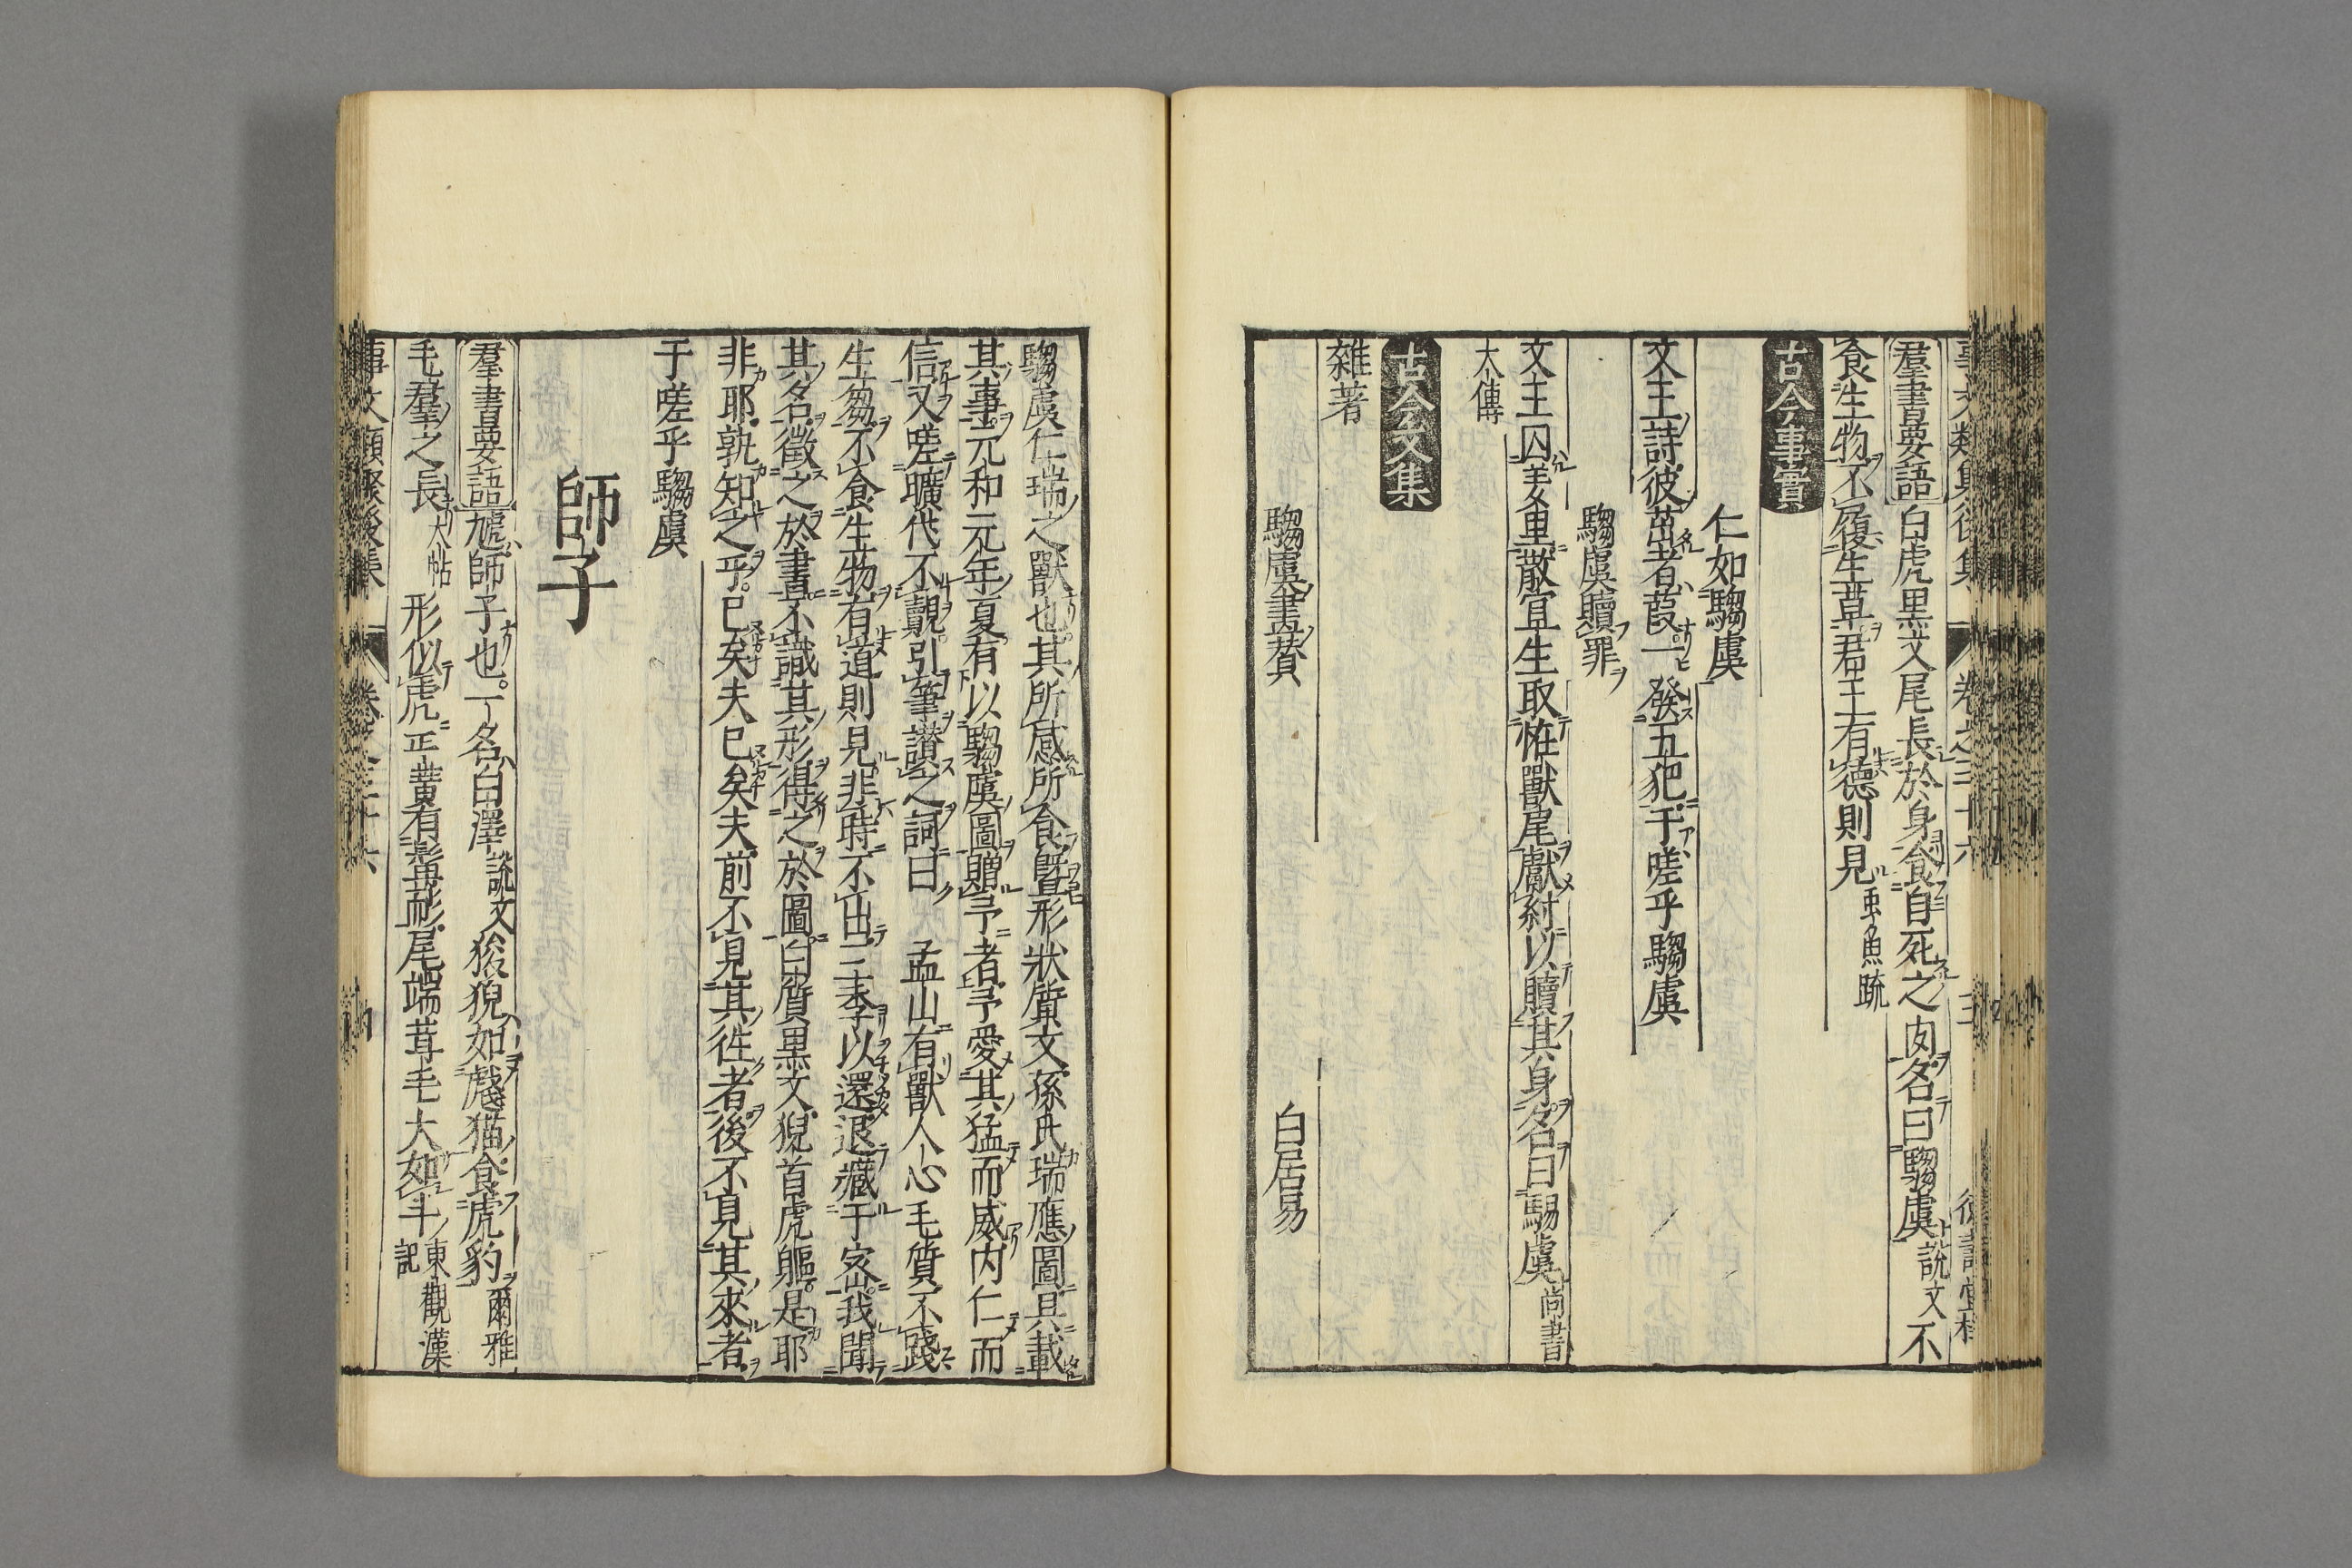 羣書要語白虎黒文尾長於身食自死之肉名曰騶虞説文不
食生物不履生草君王有德則見䖝魚疏
古今事實
仁如騶虞
文王詩彼茁者葭一發五豝于嗟乎騶虞
騶虞贖罪
文王囚羑里散宜生取恠獸尾獻紂以贖其身名曰騶虞尚書
大傳
古今文集
雜著
騶虞畫賛 白居易
騶虞仁瑞之獸也其所感所食曁形狀質文孫氏瑞應圖具載
其事元和元年夏有以騶虞圖贈予者予愛其猛而威内仁而
信又嗟曠代不覿引筆讃之詞曰 孟山有獸人心毛質不踐
生蒭不食生物有道則見非時不出三季以還退藏于密我聞
其名徵之於書不識其形得之於圖白質黒文猊首虎軀是耶
非耶孰知之乎已矣夫已矣夫前不見其徃者後不見其來者
于嗟乎騶虞
師子
羣書要語虓師子也一名白澤説文狻猊如虦猫食虎豹爾雅
毛羣之長六帖形似虎正黄有髯耏尾端茸毛大如斗東觀漢
記
事文類聚後集 卷之三十六